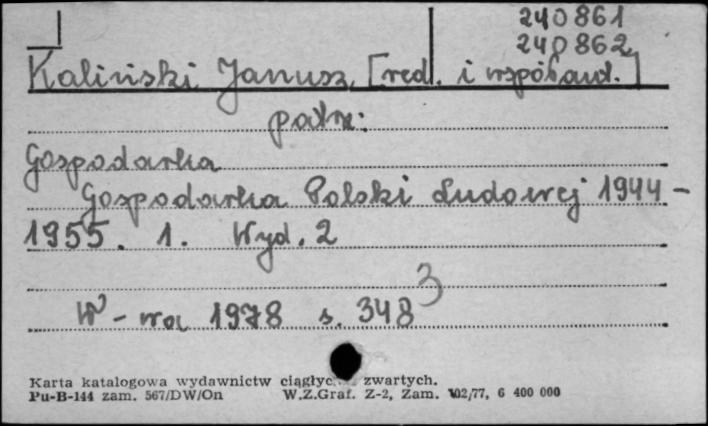 240861
240862
Kaliński Janusz [red. i współaut.]
patrz:
Gospodarka
Gospodarka Polski Ludowej 1944-
1955. 1. Wyd. 2
3
W-wa 1978 s. 348
Karta katalogowa wydawnictw zwartych.
Pu-B-144 zam. 567/DW/On W.Z.Graf. Z-2, Zam. 102/77, 6 400 000